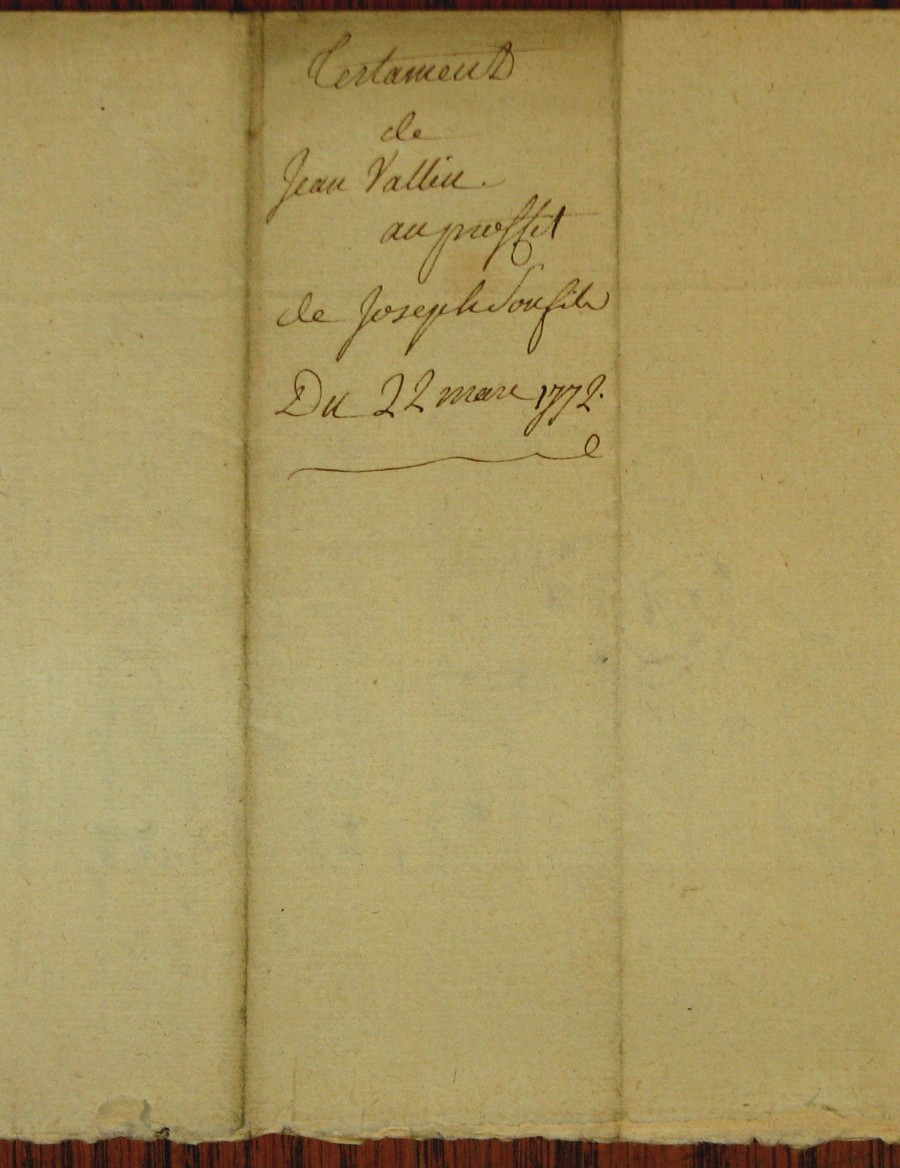 Testament
de
Jean Vallin.
au proffit
de Joseph Son fils
Du 22 mars 1772.